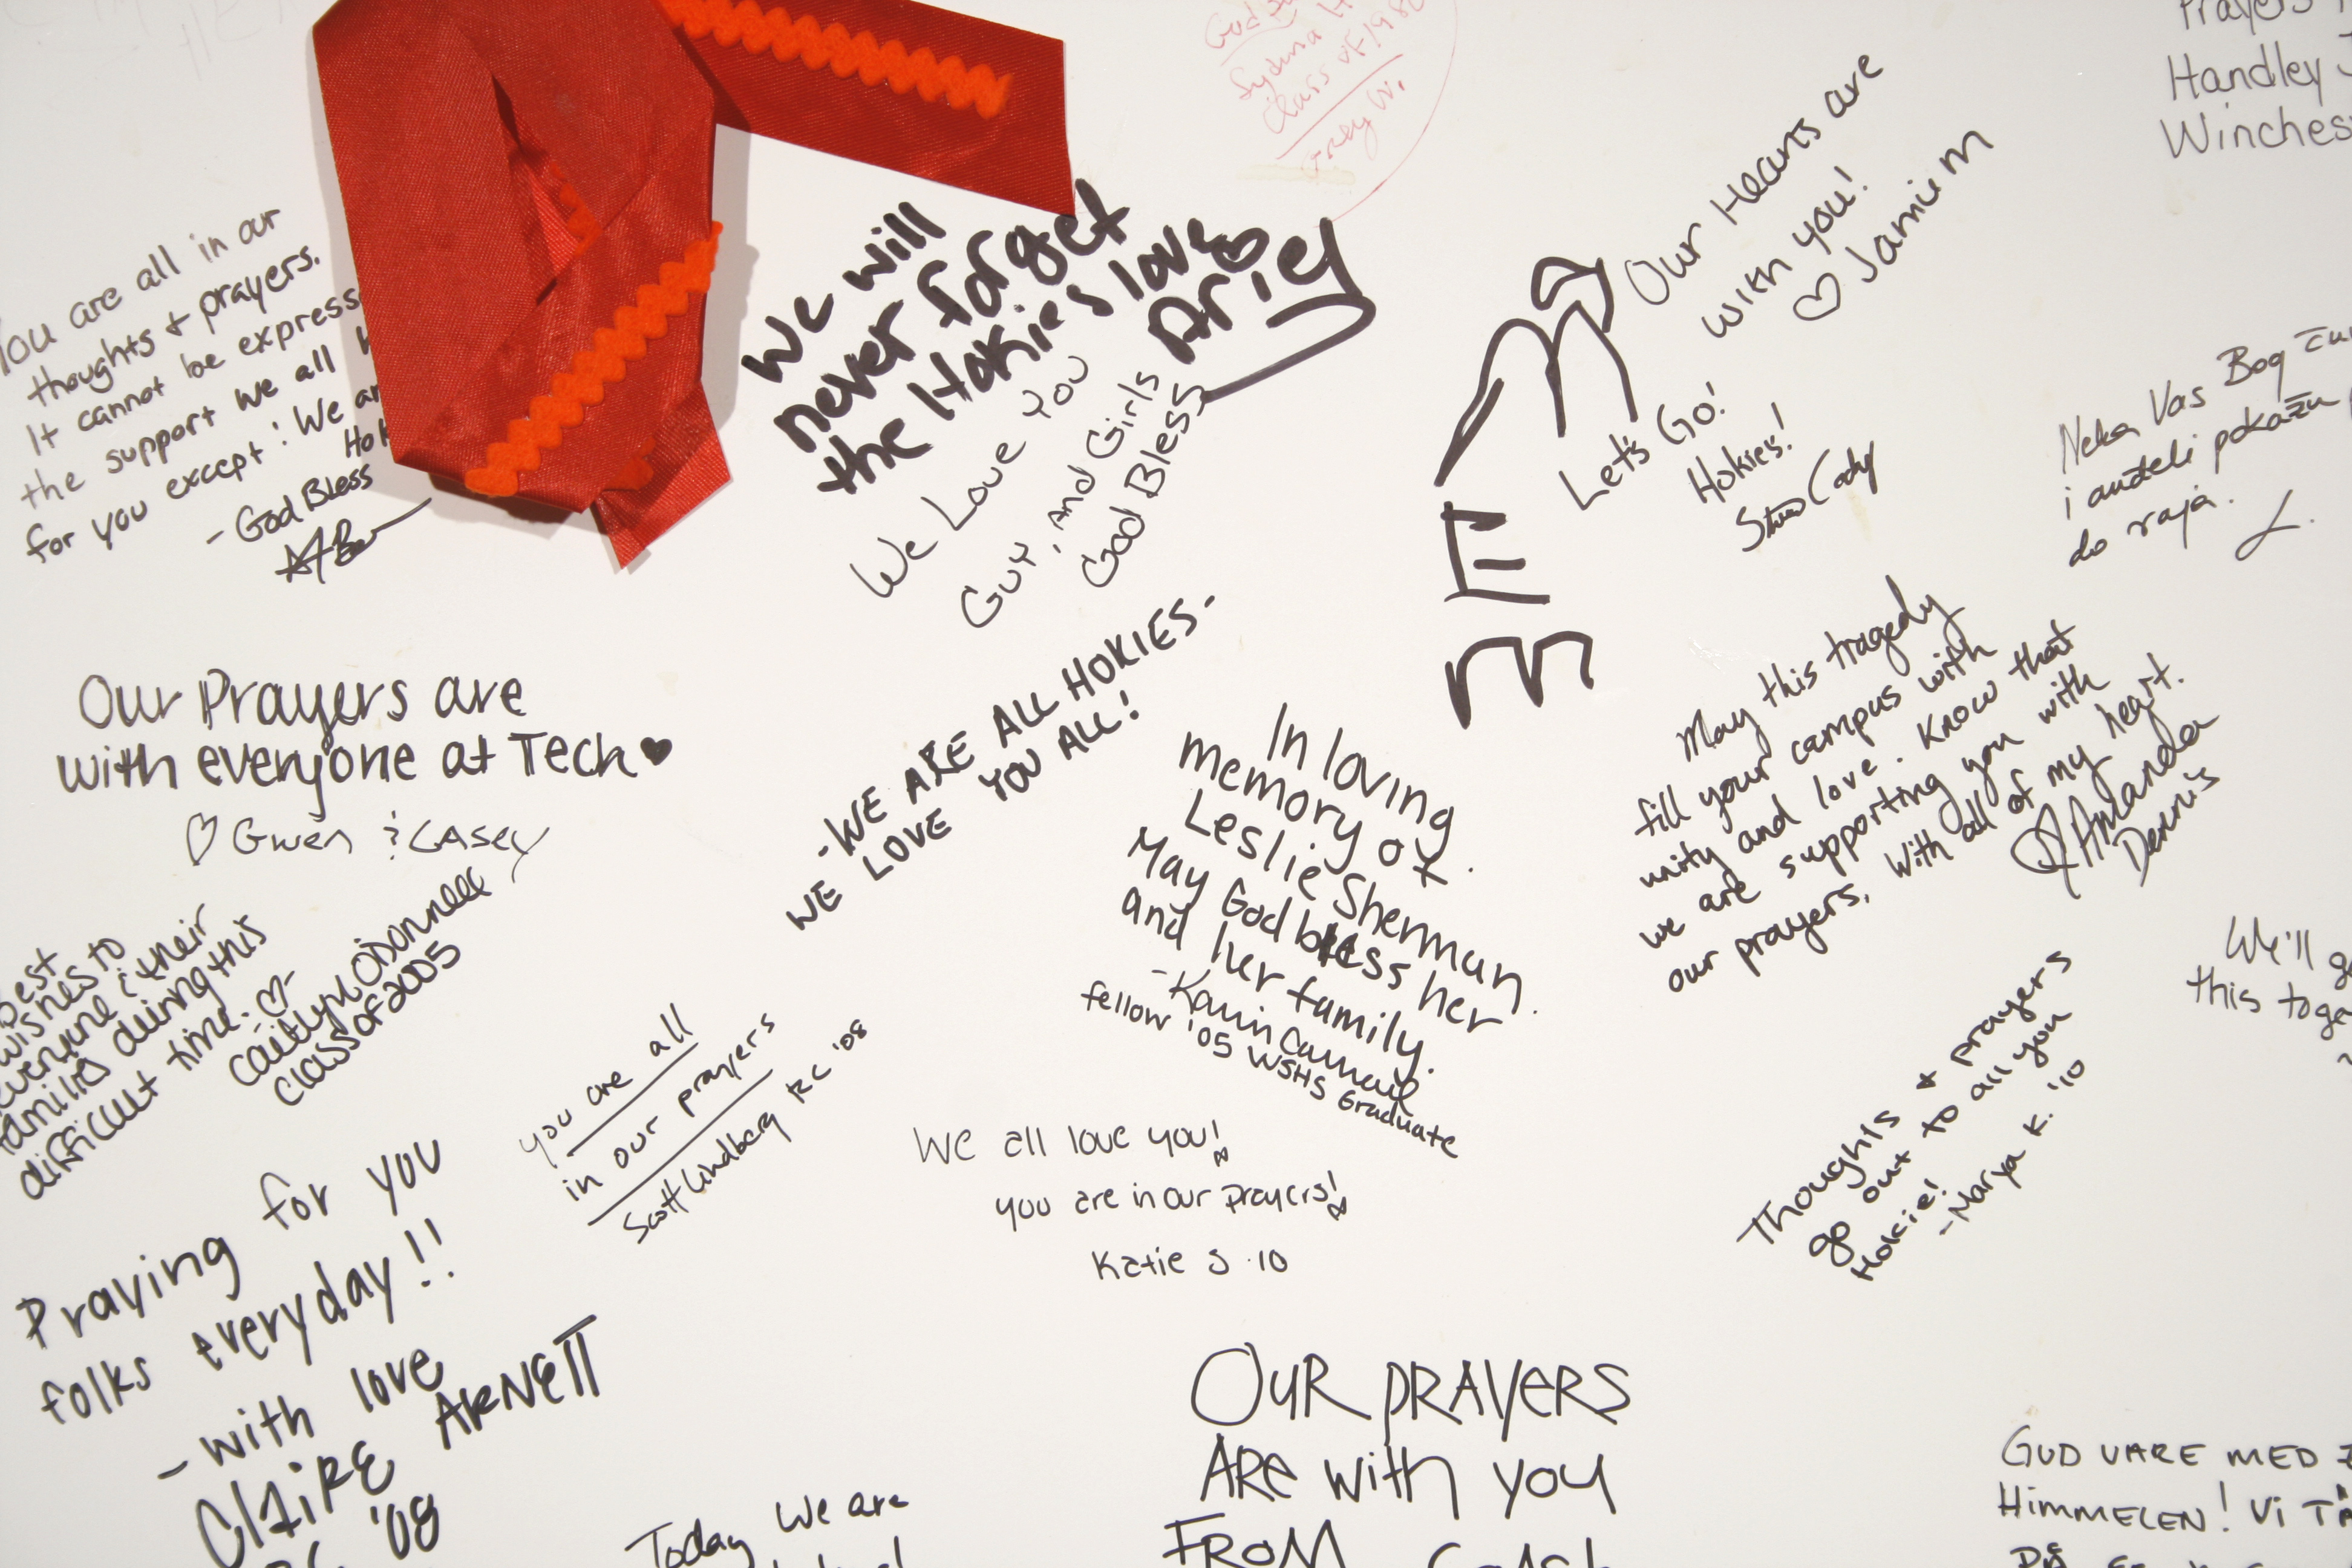 You are all in our
thoughts + prayers.
It cannot be express
the support we all
for you except! We ar
Hok
- God Bless
We will
never forget
the Hokies love
Ariel
We Love You
Guy, And Girls
God Bless
class of 198
Our Hearts are
with you!
♡ Jamie M
Let's Go!
Hokies!
Prayers
Handley
Winches
Neka Vas Bog
i anđeli pokažu
do raja.
Our Prayers are
with everyone at Tech ♥
♡ Gwen & Casey
- WE ARE ALL HOKIES -
WE LOVE YOU ALL!
In loving
memory of
Leslie Sherman.
May God bless her
and her family.
fellow '05 WSHS Graduate
May this tragedy
fill your campus with
unity and love. Know that
we are supporting you with
our prayers. With all of my heart.
Amanda
Dennis
Best
wishes to
everyone & their
families during this
difficult time. -♡-
Caitlyn O'Donnell
Class of 2005
you are all
in our prayers
Scott Lindberg RC '08
We all love you!
you are in our prayers!
Katie S '10
Thoughts + prayers
go out to all you
Hokie!
- Marya K. '10
We'll g
this toge
Praying for you
folks everyday!!
- with love
Claire ARNETT
'08
Today We are
OUR PRAYERS
ARE with you
FROM
GUD VARE MED
HIMMELEN! Vi TÄ
PÅ